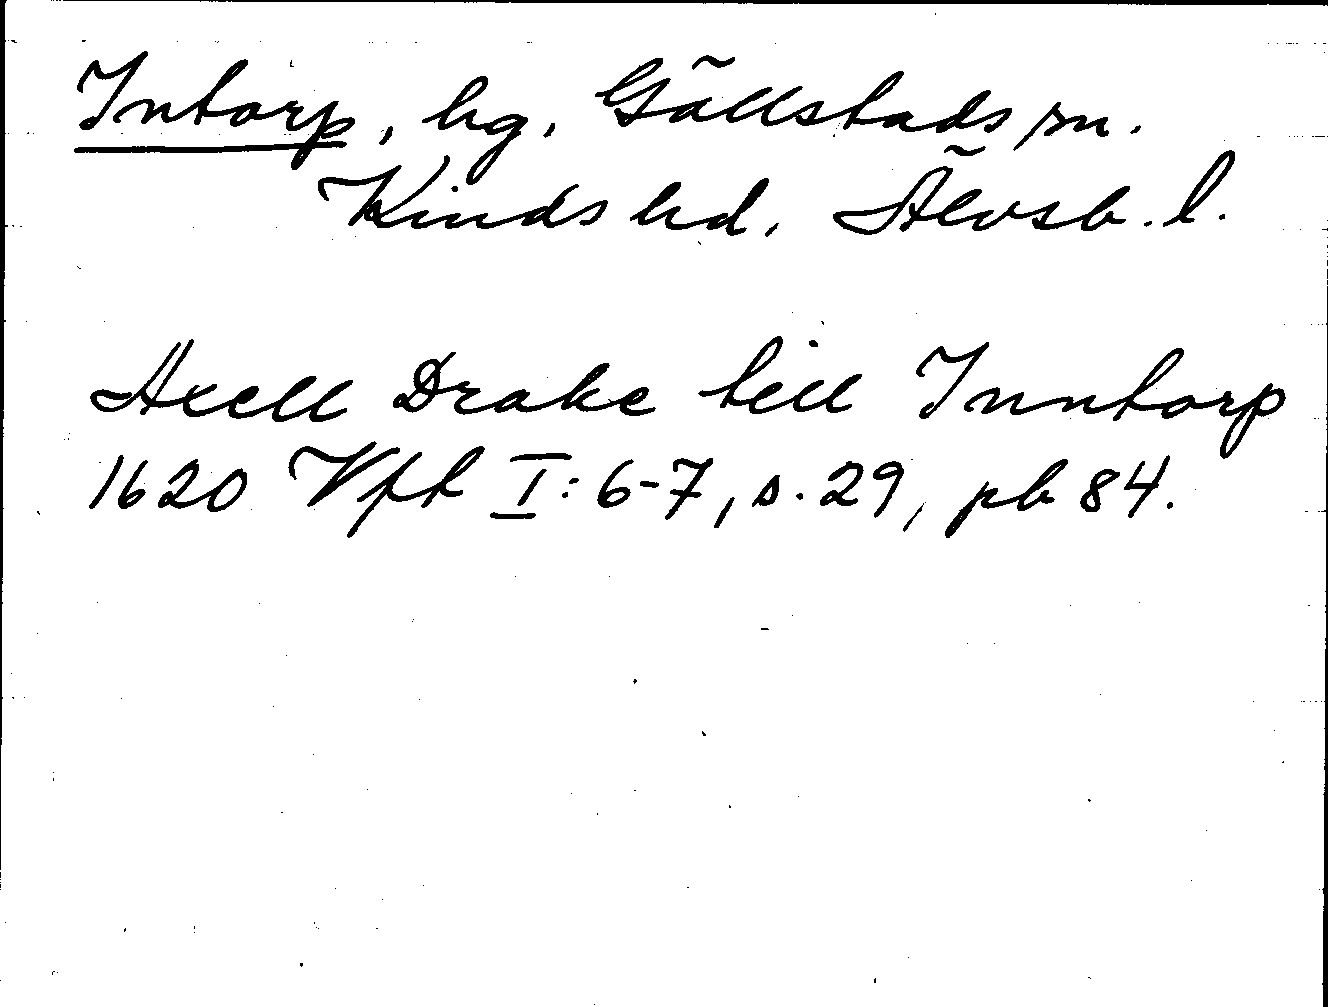 Intorp, hg, Gällstads sn.
Kinds hd, Älvsb. l.
Axell Drake till Inntorp
1620 Vft I: 6-7, s. 29, pb 84.